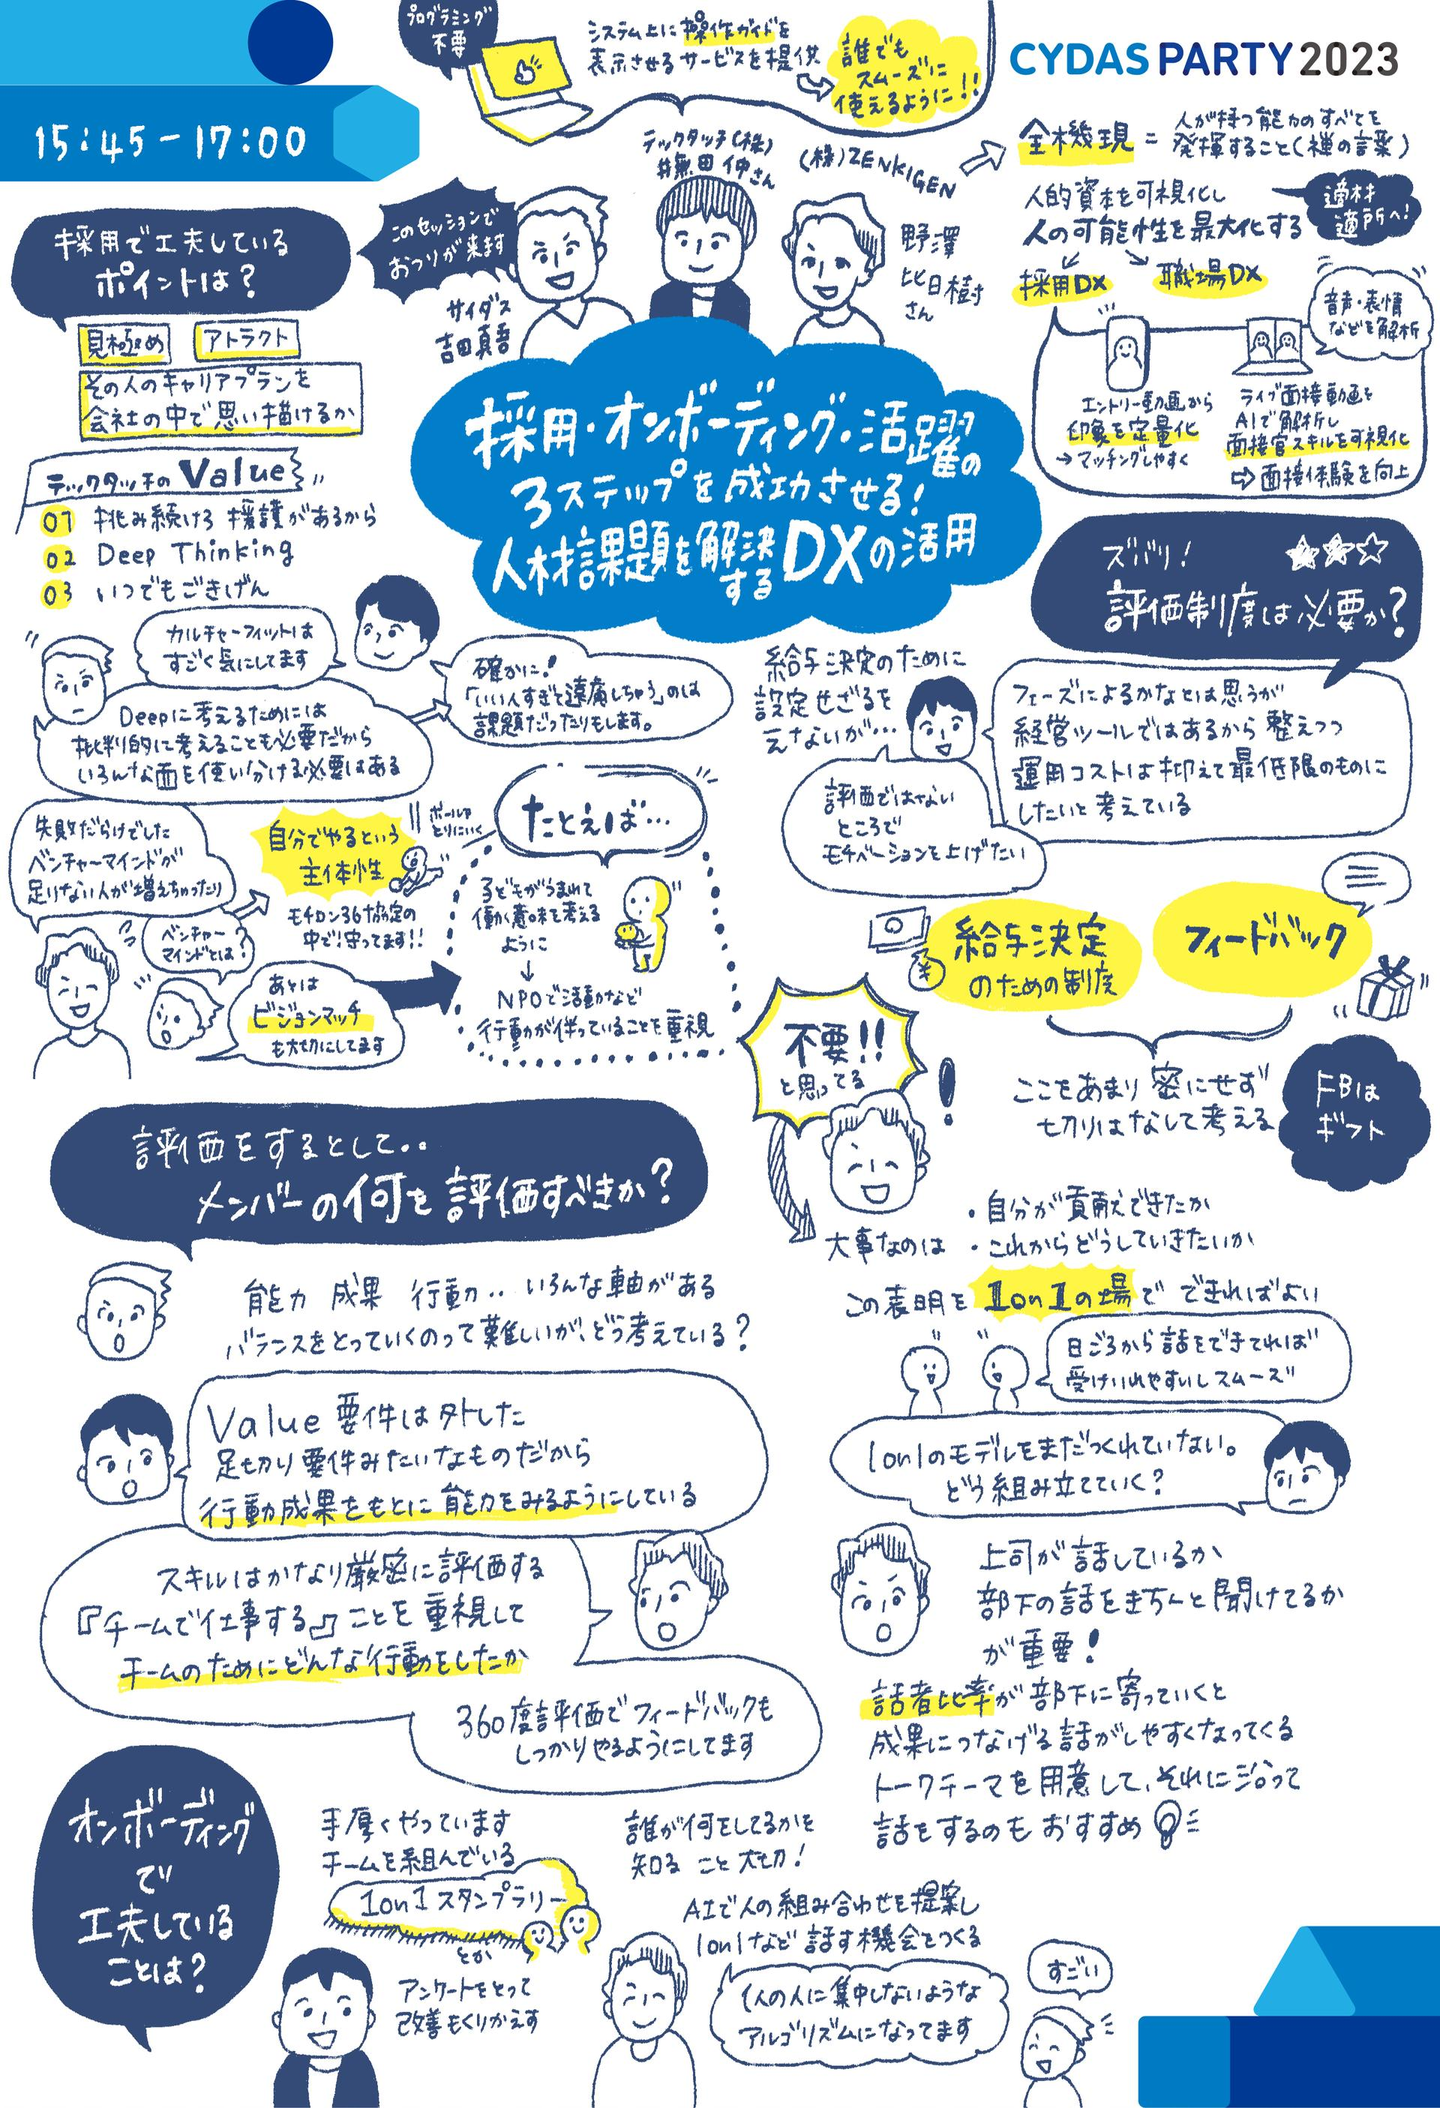 CYDAS PARTY 2023
15:45-17:00
プログラミング
不要
システム上に操作ガイドを
表示させるサービスを提供
誰でも
スムーズに
使えるように!!
テックタッチ(株)
井無田 仲さん
(株)ZENKIGEN
野澤
比日樹
さん
このセッションで
おつりが来ます
サイダス
吉田真吾
全機現 = 人が持つ能力のすべてを
発揮すること(禅の言葉)
人的資本を可視化し
人の可能性を最大化する
適材
適所へ!
採用DX
職場DX
音声・表情
などを解析
エントリー動画から
印象を定量化
→マッチングしやすく
ライブ面接動画を
AIで解析し
面接官スキルを可視化
⇨面接体験を向上
採用・オンボーディング・活躍の
3ステップを成功させる!
人材課題を解決するDXの活用
採用で工夫している
ポイントは?
見極め
アトラクト
その人のキャリアプランを
会社の中で思い描けるか
テックタッチのValue
01 挑み続けろ 援護があるから
02 Deep Thinking
03 いつでもごきげん
カルチャーフィットは
すごく気にしてます
Deepに考えるためには
批判的に考えることも必要だから
いろんな面を使い分ける必要はある
確かに!
「いい人すぎて遠慮しちゃう」のは
課題だったりもします。
失敗だらけでした
ベンチャーマインドが
足りない人が増えちゃったり
ベンチャー
マインドとは?
自分でやるという
主体性
ボールを
とりにいく
モチロン36協定の
中で!守ってます!!
あとは
ビジョンマッチ
も大切にしてます
たとえば…
子どもがうまれて
働く意味を考える
ように
↓
NPOで活動など
行動が伴っていることを重視
ズバリ!
評価制度は必要か?
フェーズによるかなとは思うが
経営ツールではあるから整えつつ
運用コストは抑えて最低限のものに
したいと考えている
給与決定のために
設定せざるを
えないが…
評価ではない
ところで
モチベーションを上げたい
給与決定
のための制度
フィードバック
ここをあまり密にせず
切りはなして考える
FBは
ギフト
不要!!
と思ってる
大事なのは
・自分が貢献できたか
・これからどうしていきたいか
この表明を 1on1の場で できればよい
日ごろから話をできてれば
受けいれやすいしスムーズ
1on1のモデルをまだつくれていない。
どう組み立てていく?
上司が話しているか
部下の話をきちんと聞けてるか
が重要!
話者比率が部下に寄っていくと
成果につなげる話がしやすくなってくる
トークテーマを用意して、それに沿って
話をするのもおすすめ
評価をするとして..
メンバーの何を評価すべきか?
能力 成果 行動.. いろんな軸がある
バランスをとっていくのって難しいが、どう考えている?
Value要件は外した
足切り要件みたいなものだから
行動成果をもとに能力をみるようにしている
スキルはかなり厳密に評価する
『チームで仕事する』ことを重視して
チームのためにどんな行動をしたか
360度評価でフィードバックも
しっかりやるようにしてます
オンボーディング
で
工夫している
ことは?
手厚くやっています
チームを組んでいる
1on1スタンプラリー
とか
アンケートをとって
改善もくりかえす
誰が何をしてるかを
知ること大切!
AIで人の組み合わせを提案し
1on1など話す機会をつくる
1人の人に集中しないような
アルゴリズムになってます
すごい